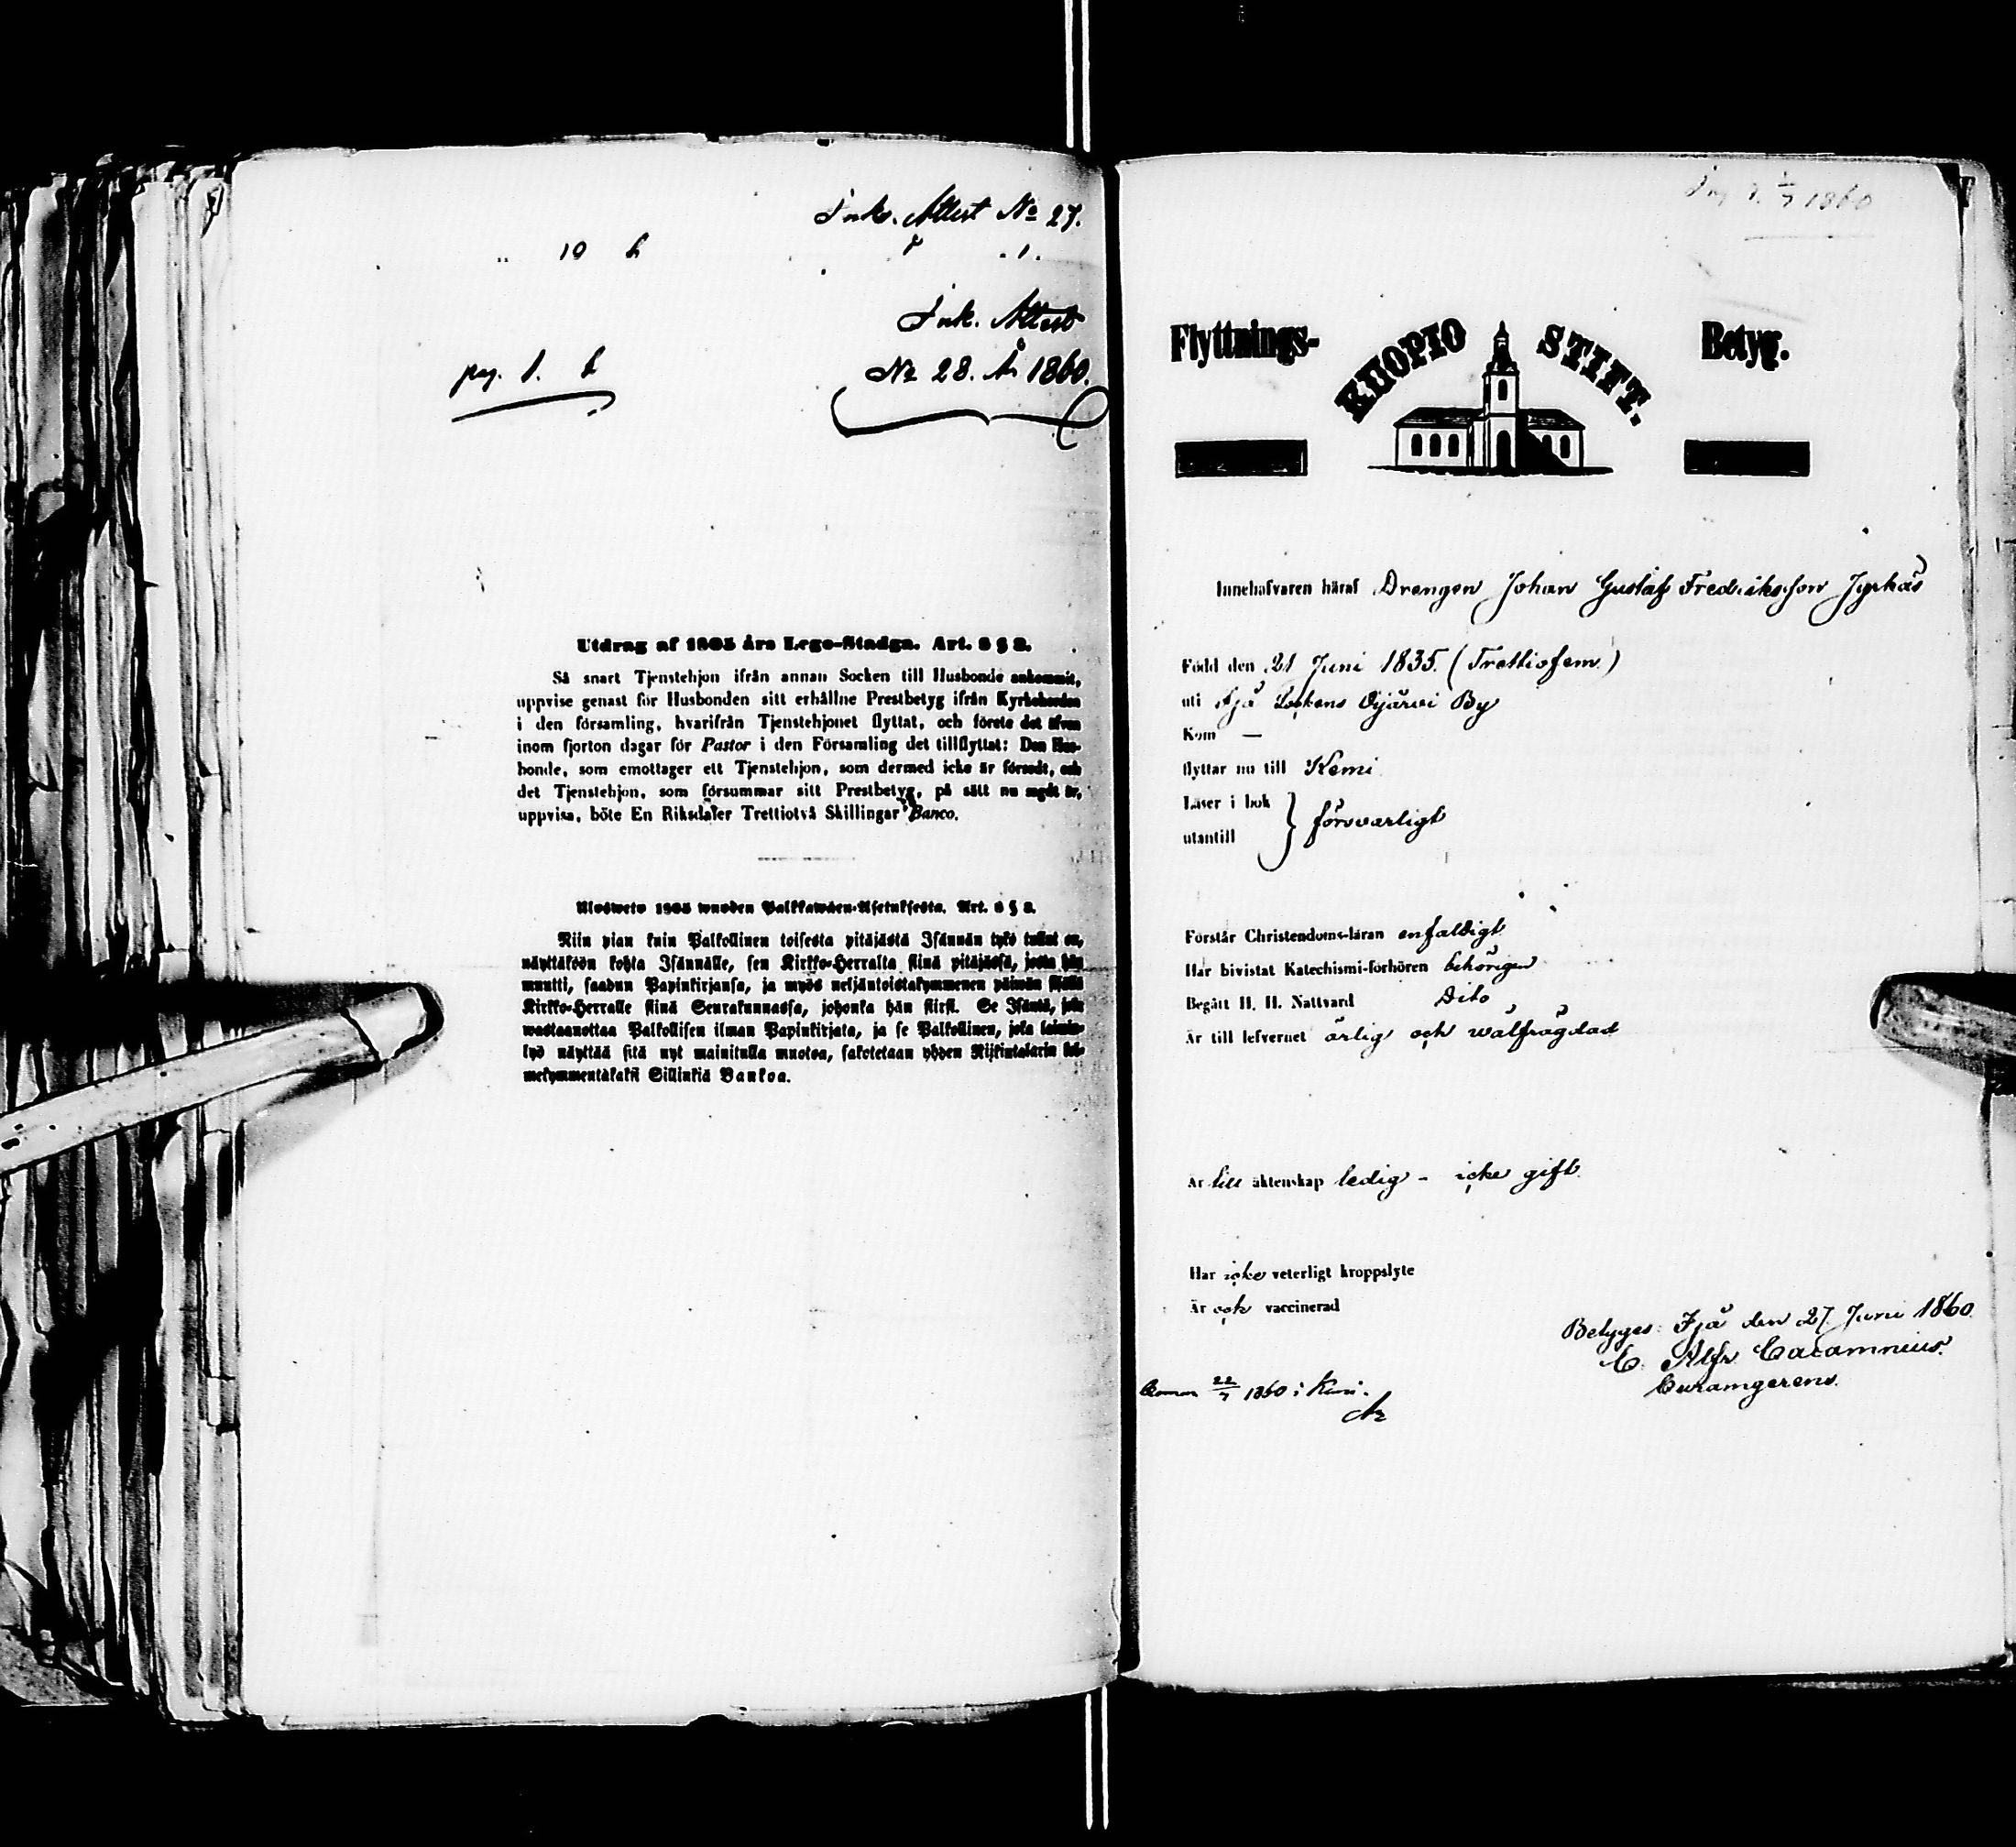 Ink. Attest No 27.
10 b
1.
Ink. Attest
No 28. År 1860.
pag. 1. b
Utdrag af 1805 års Lego-Stadga. Art. 6 § 2.
Så snart Tjenstehjon ifrån annan Socken till Husbonde ankommit,
uppvise genast för Husbonden sitt erhållne Prestbetyg ifrån Kyrkoherden
i den församling, hvarifrån Tjenstehjonet flyttat, och förete det äfven
inom fjorton dagar för Pastor i den Församling det tillflyttat: Den Hus-
bonde, som emottager ett Tjenstehjon, som dermed icke är försedt, och
det Tjenstehjon, som försummar sitt Prestbetyg, på sätt nu sagdt är,
uppvisa, böte En Riksdaler Trettiotvå Skillingar Banco.
Ulosweto 1805 wuoden Palkkawäen-Asetuksesta. Art. 6 § 2.
Niin pian kuin Palkollinen toisesta pitäjästä Isännän tykö tullut on,
näyttäköön kohta Isännälle, sen Kirkko-Herralta siinä pitäjässä, josta hän
muutti, saadun Papinkirjansa, ja myös neljäntoistakymmenen päiwän sisällä
Kirkko-Herralle siinä Seurakunnassa, johonka hän siirsi. Se Isäntä, joka
wastaanottaa Palkollisen ilman Papinkirjata, ja se Palkollinen, joka laimin-
lyö näyttää sitä nyt mainitulla muotoa, sakotetaan yhden Riikintalarin kol-
mekymmentäkaksi Sillinkiä Bankoa.
1860
Flyttnings- KUOPIO STIFT. Betyg.
Innehafvaren häraf Drengen Johan Gustaf Fredriksson Jyrkäs
Född den 21 Juni 1835. (Trettiofem.)
uti Ijå Sockens Ojärvi By
Kom —
flyttar nu till Kemi
Läser i bok
utantill } försvarligt
Förstår Christendoms-läran enfaldigt
Har bivistat Katechismi-förhören behörigen
Begått H. H. Nattvard Dito
Är till lefvernet ärlig och wälfrägdad
Är till äktenskap ledig - icke gift
Har icke veterligt kroppslyte
Är ock vaccinerad
Betygas Ijå den 27 Juni 1860
C. Alfr. Cacamnius.
Curamgerens.
22/7 1860 i Kemi.